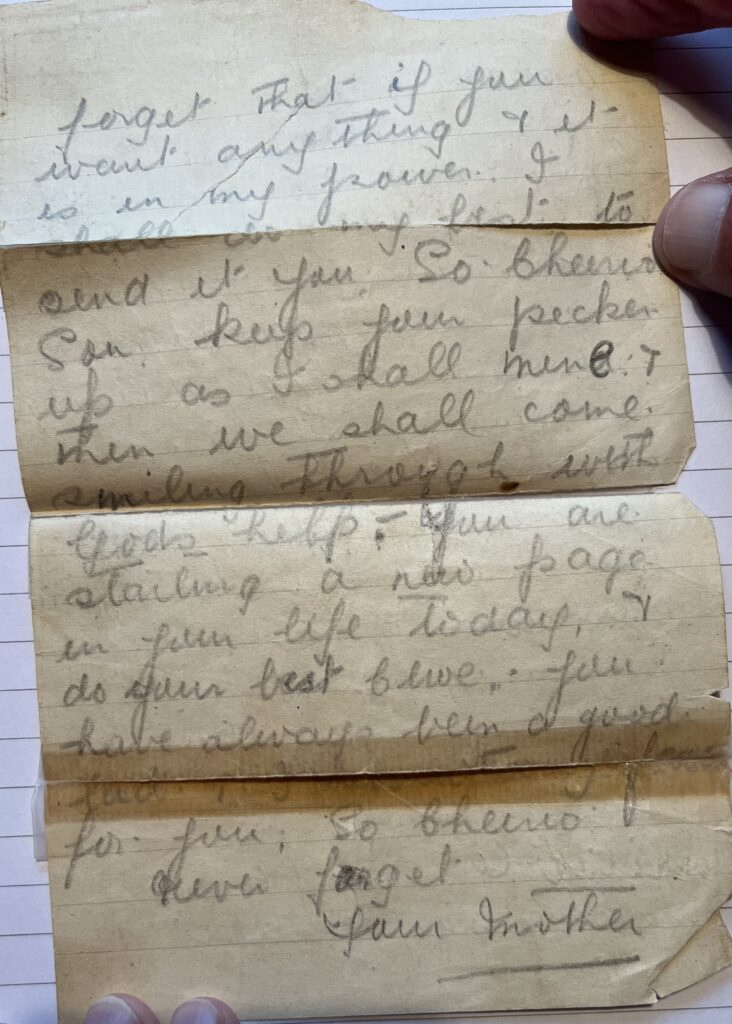 forget that if you
want any thing & it
is in my power. I
shall do my best to
send it you. So Cheerio
Son. keep your pecker
up as I shall mine. &
then we shall come.
smiling through with
Gods help. - You are
starting a new page
in your life today, &
do your best Clive. you
have always been a good
lad
for you. So Cheerio.
never forget
Your Mother